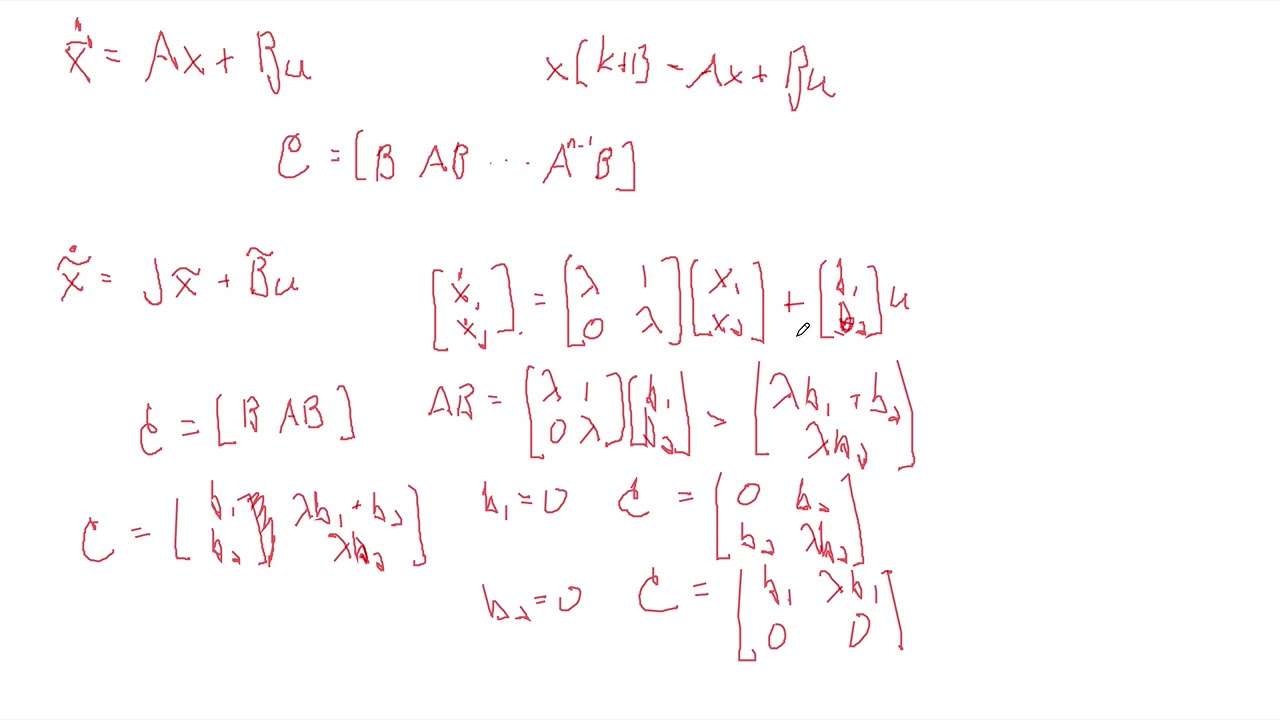 ẋ = Ax + Bu    x[k+1] = Ax + Bu
C = [B AB ⋯ Aⁿ⁻¹B]
x̃̇ = Jx̃ + B̃u    [ẋ₁; ẋ₂] = [λ 1; 0 λ][x₁; x₂] + [b₁; b₂]u
C = [B AB]    AB = [λ 1; 0 λ][b₁; b₂] = [λb₁ + b₂; λb₂]
C = [b₁ λb₁ + b₂; b₂ λb₂]    b₁ = 0    C = [0 b₂; b₂ λb₂]
b₂ = 0    C = [b₁ λb₁; 0 0]